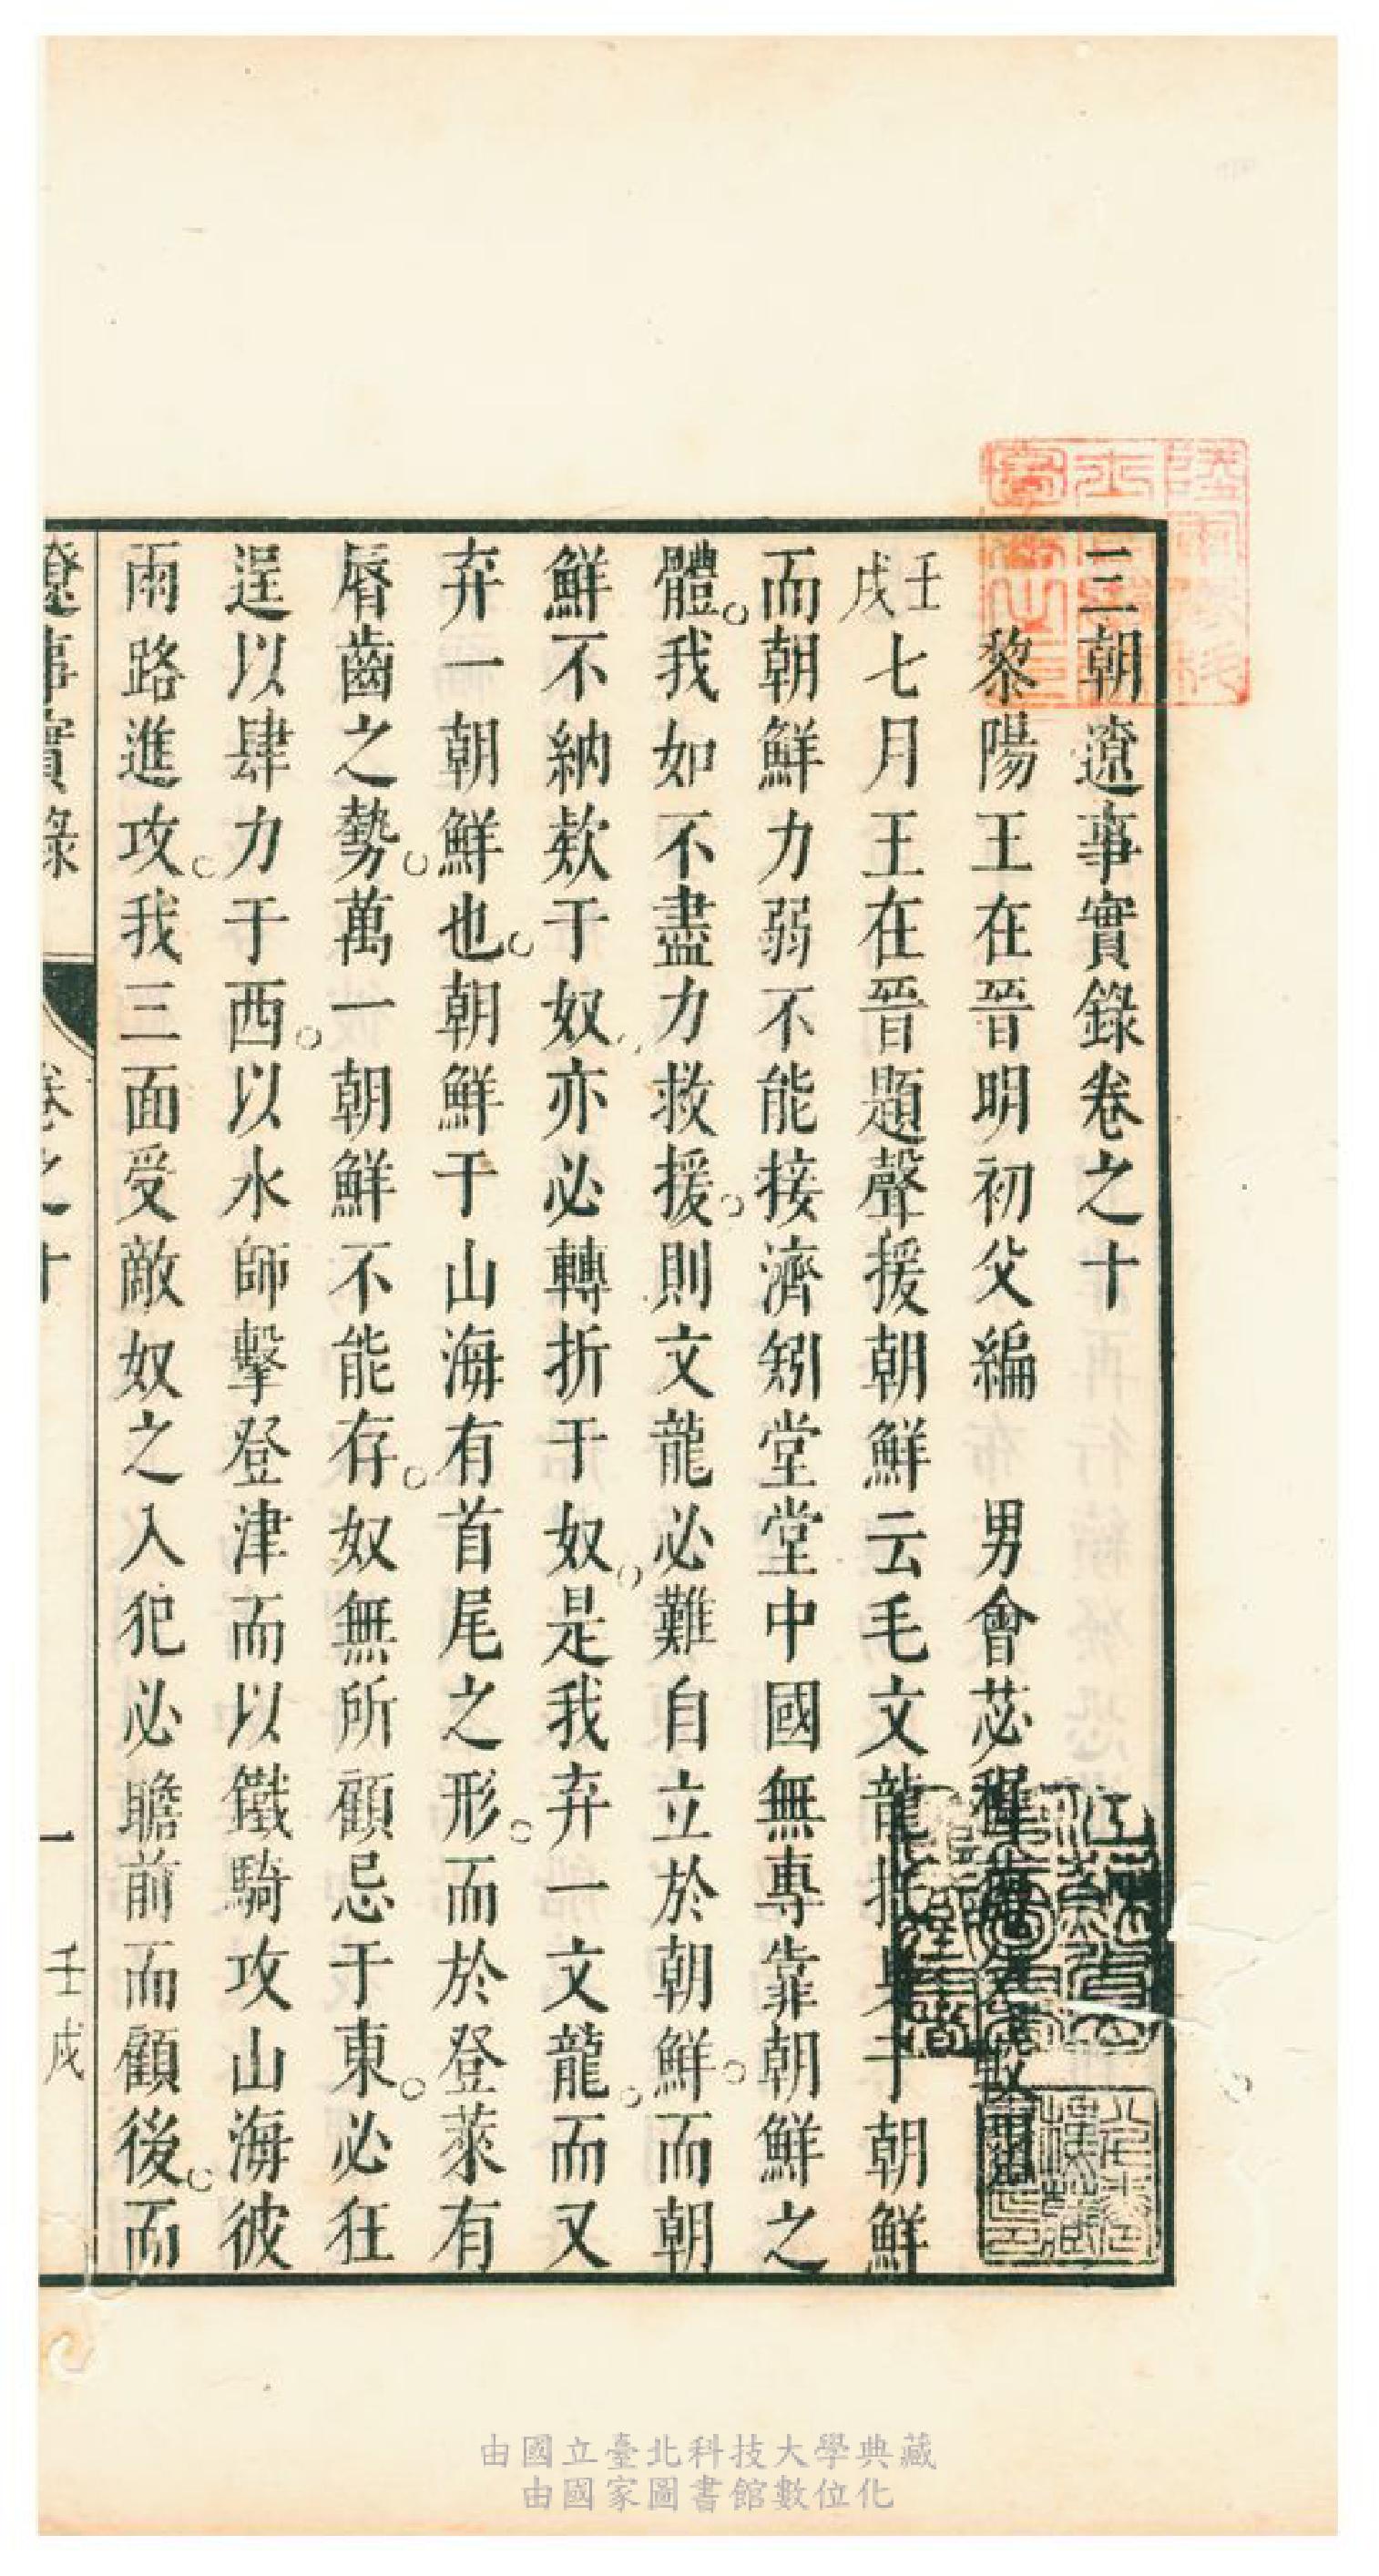 三朝遼事實錄卷之十
黎陽王在晉明初父編　男會苾
壬戌七月王在晉題聲援朝鮮云毛文龍 朝鮮
而朝鮮力弱不能接濟矧堂堂中國無專靠朝鮮之
體。我如不盡力救援。則文龍必難自立於朝鮮。而朝
鮮不納欵于奴、亦必轉折于奴。是我弃一文龍。而又
弃一朝鮮也。朝鮮于山海有首尾之形。而於登萊有
脣齒之勢。萬一朝鮮不能存。奴無所顧忌于東。必狂
逞以肆力于西。以水師擊登津而以鐵騎攻山海彼
兩路進攻。我三面受敵奴之入犯必瞻前而顧後。而
遼事實錄　卷之十　一　壬戌
由國立臺北科技大學典藏
由國家圖書館數位化